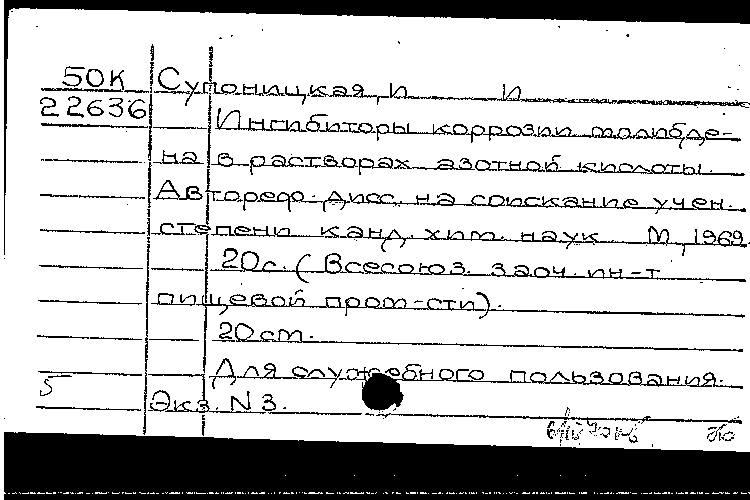 50К Супоницкая, И И
22636 Ингибиторы коррозии молибде-
на в растворах азотной кислоты.
Автореф. дисс. на соискание учен.
степени канд. хим. наук М., 1969.
20с. (Всесоюз. заоч. ин-т
пищевой пром-сти).
20см.
Для служебного пользования.
5 Экз. N 3.